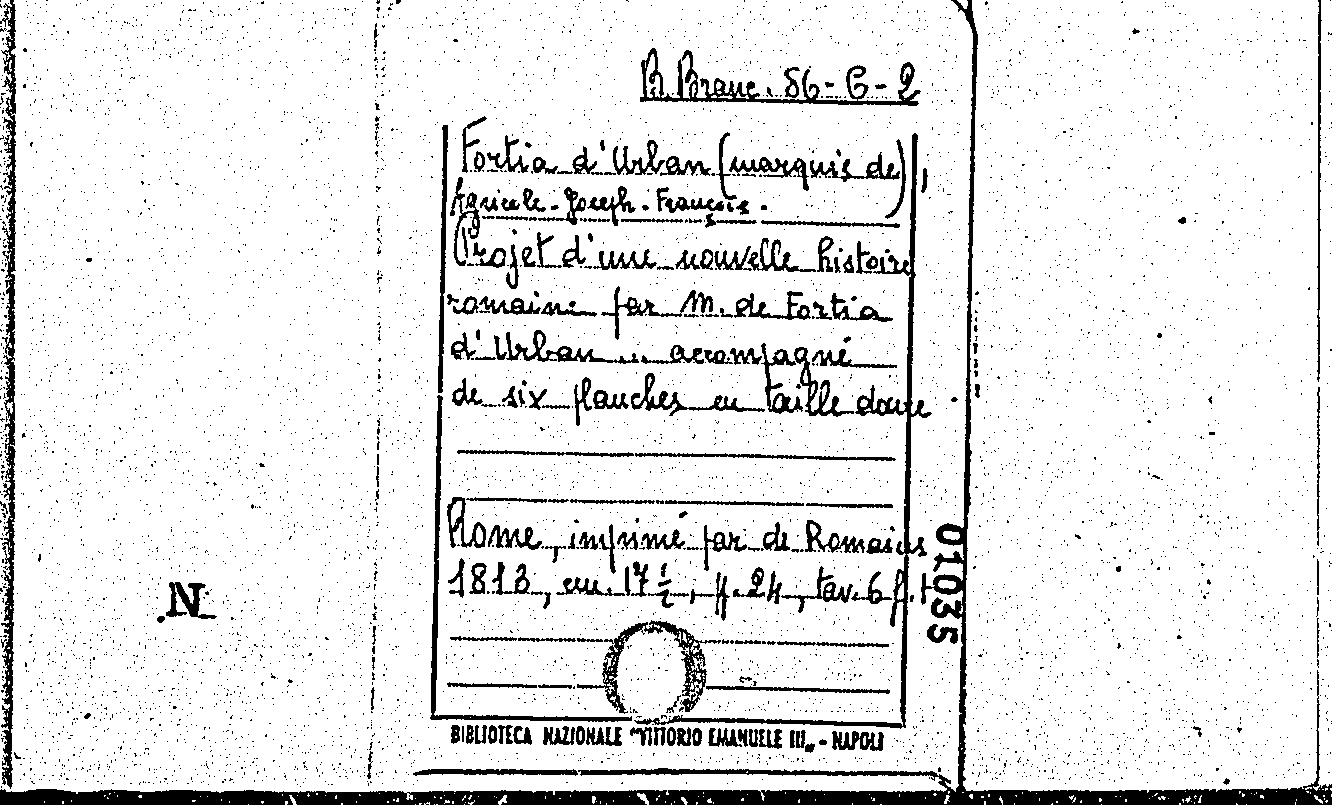 B. Branc. 56-G-2
Fortia d'Urban (marquis de),
Agricole-Joseph-François.
Projet d'une nouvelle histoire
romaine par M. de Fortia
d'Urban... accompagné
de six planches en taille douce
Rome, imprimé par de Romanis
1813, cm. 17 ½, p. 24, tav. 6 f.t
01035
N
BIBLIOTECA NAZIONALE "VITTORIO EMANUELE III„ - NAPOLI